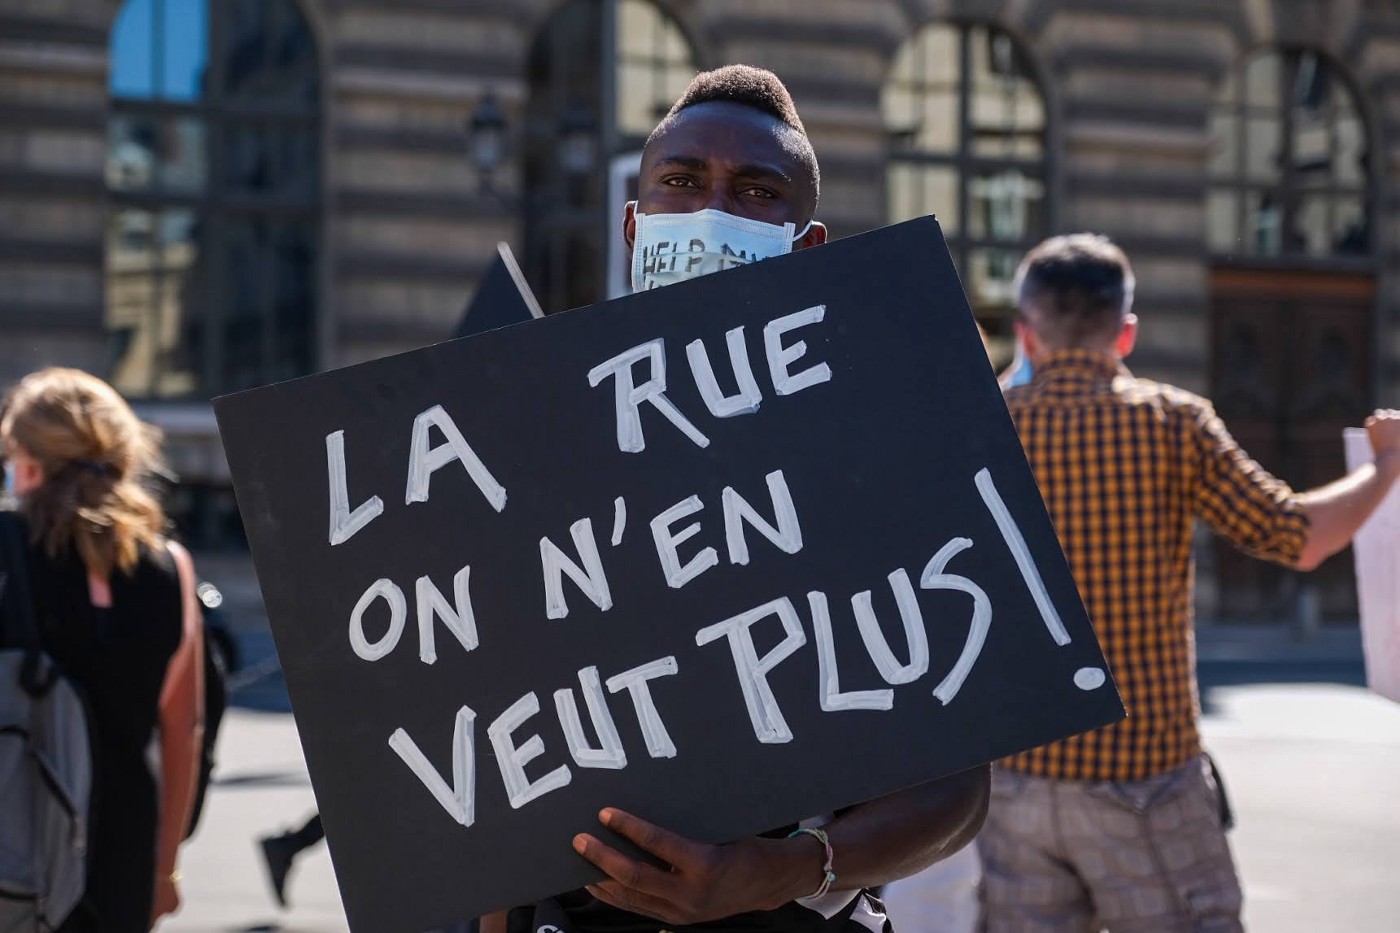 HELP
LA RUE
ON N'EN
VEUT PLUS!